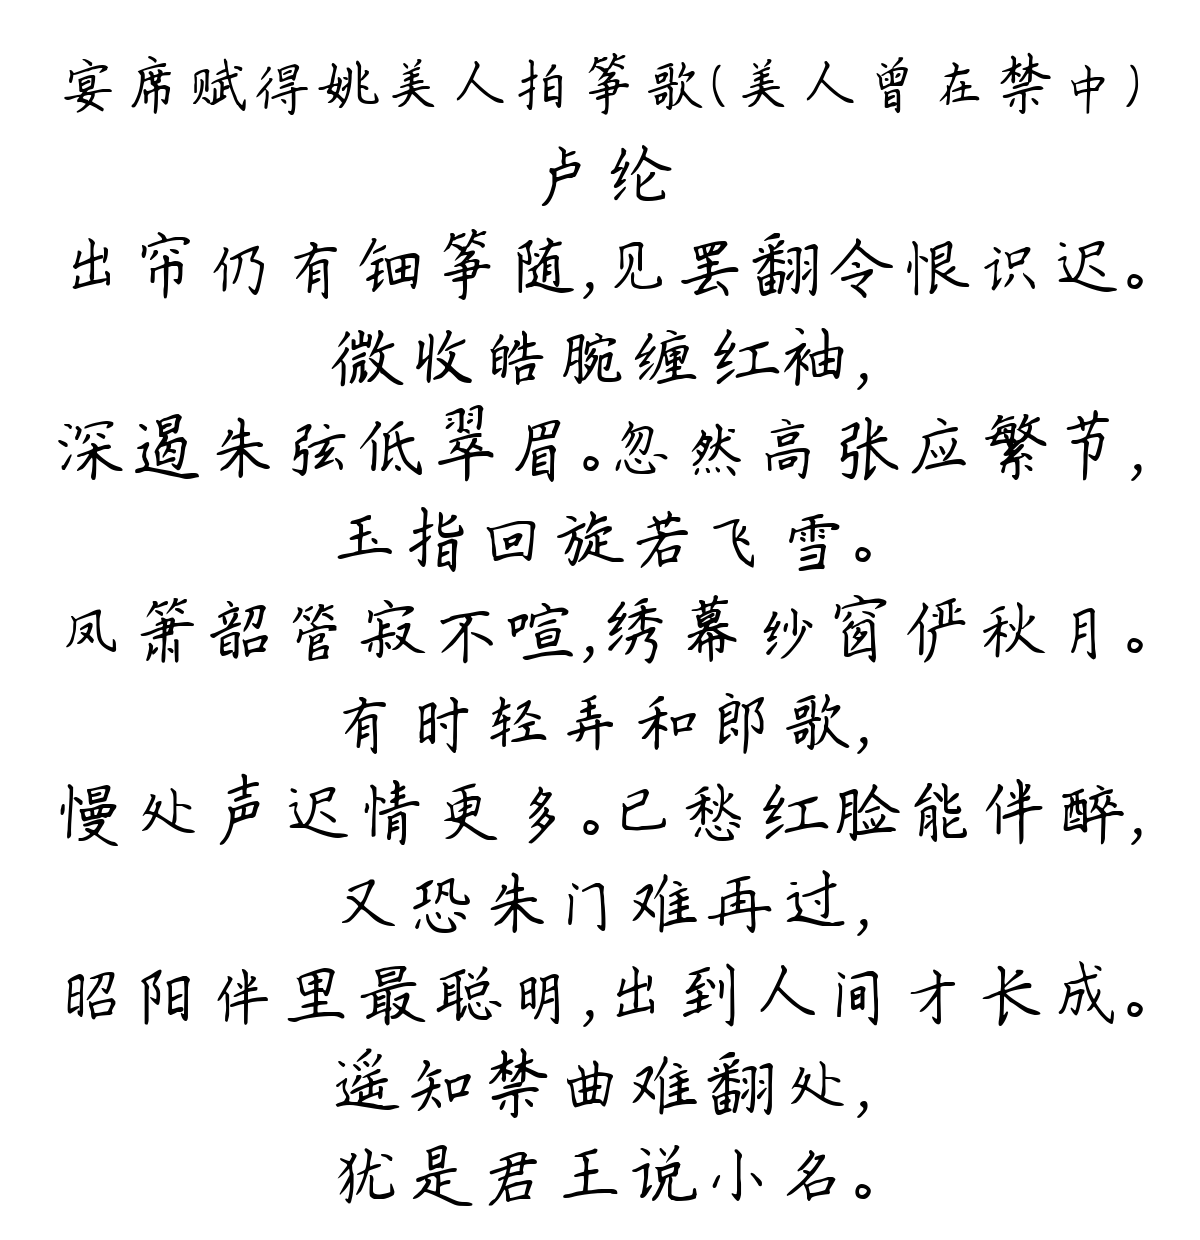 宴席赋得姚美人拍筝歌(美人曾在禁中)
卢纶
出帘仍有钿筝随,见罢翻令恨识迟。
微收皓腕缠红袖,
深遏朱弦低翠眉。忽然高张应繁节,
玉指回旋若飞雪。
凤箫韶管寂不喧,绣幕纱窗俨秋月。
有时轻弄和郎歌,
慢处声迟情更多。已愁红脸能伴醉,
又恐朱门难再过,
昭阳伴里最聪明,出到人间才长成。
遥知禁曲难翻处,
犹是君王说小名。